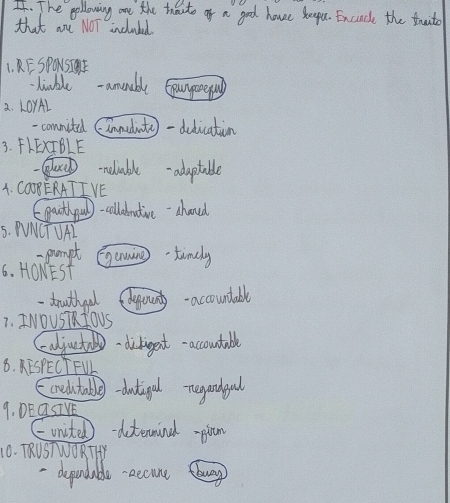 II. The following are the traits of a good house keeper. Encircle the traits
that are NOT included.
1. RESPONSIBLE
- liable - amenable purposeful
2. LOYAL
- commited - immediate - dedication
3. FLEXIBLE
- - reliable - adaptable
4. COOPERATIVE
- faithful - collaborative - shared
5. PUNCTUAL
- prompt - genuine - timely
6. HONEST
- truthful - different - accountable
7. INDUSTRIOUS
- adjustable - diligent - accountable
8. RESPECTFUL
- creditable - dutiful - regardful
9. DECISIVE
- united - determined - firm
10. TRUSTWORTHY
- dependable - secure - busy